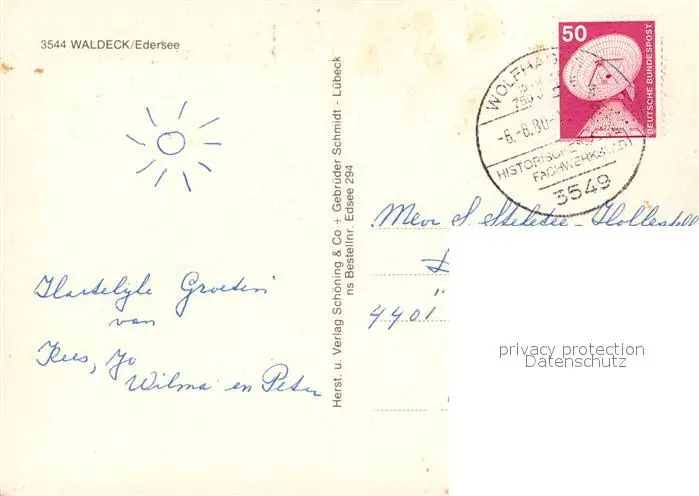 3544 WALDECK/Edersee
Hartelijke Groeten
van
Kees, Jo
Wilma en Peter
Herst. u. Verlag Schöning & Co + Gebrüder Schmidt - Lübeck
ns Bestellnr. Edsee 294
50
DEUTSCHE BUNDESPOST
-6.-8.80-
HISTORISCHE
FACHWERKSTADT
3549
Mevr S. Steketee - Hollestell
4401
privacy protection
Datenschutz